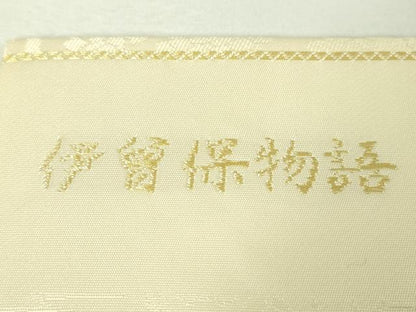 伊曽保物語